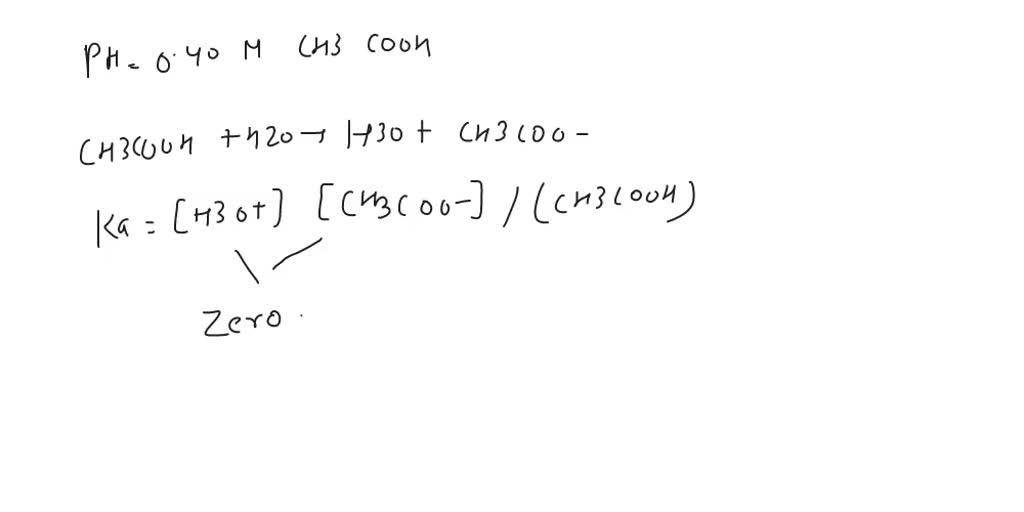 PH = 0.40 M CH3 COOH
CH3COOH + H2O → H3O + CH3COO-
Ka = [H3O+] [CH3COO-] / (CH3COOH)
Zero.